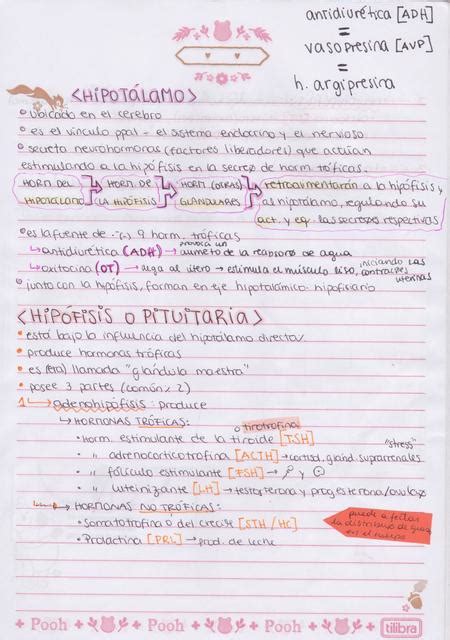 antidiurética [ADH]
=
vasopresina [AVP]
=
h. argipresina
<HIPOTÁLAMO>
ubicado en el cerebro
es el vínculo ppal - el sistema endocrino y el nervioso
secreta neurohormonas (factores liberadores) que actúan
estimulando a la hipófisis en la secreº de horm. tróficas.
HORM DEL HIPOTÁLAMO
HORM. DE LA HIPÓFISIS
HORM (OTRAS) GLANDULARES
retroaumentarán a la hipófisis y
al hipotálamo, regulando su
act. y eq. las secreºs respectivas
es la fuente de 9 horm. tróficas
provocá un
↳ antidiurético (ADH) → aumeto de la reapsorº de agua
↳ oxitocina (OT) → alga al útero → estimula el músculo liso, iniciando las contracºes uterinas
junto con la hipófisis, forman en eje hipotalámico-hipofisiario
<HIPÓFISIS O PITUITARIA>
está bajo la influencia del hipotálamo direct/.
produce hormonas tróficas
es (era) llamada "glándula maestra"
posee 3 partes (común/ 2)
1 ↳ adenohipófisis: produce
↳ HORMONAS TRÓFICAS:
o tirotrofina
• horm. estimulante de la tiroide [TSH]
"stress"
• " adrenocorticotrofina [ACTH] → cortisol, glánd. suprarrenales
• " folículo estimulante [FSH] →
• " luteinizante [LH] → testosterona y progesterona/ovulaº
↳ HORMONAS NO TRÓFICAS:
• Somatotrofina o del creciº [STH / HC]
• Prolactina [PRL] → prod. de leche
puede afectar
la distribuº de
en el cuerpo
+ Pooh + Pooh + Pooh + Pooh +
tilibra